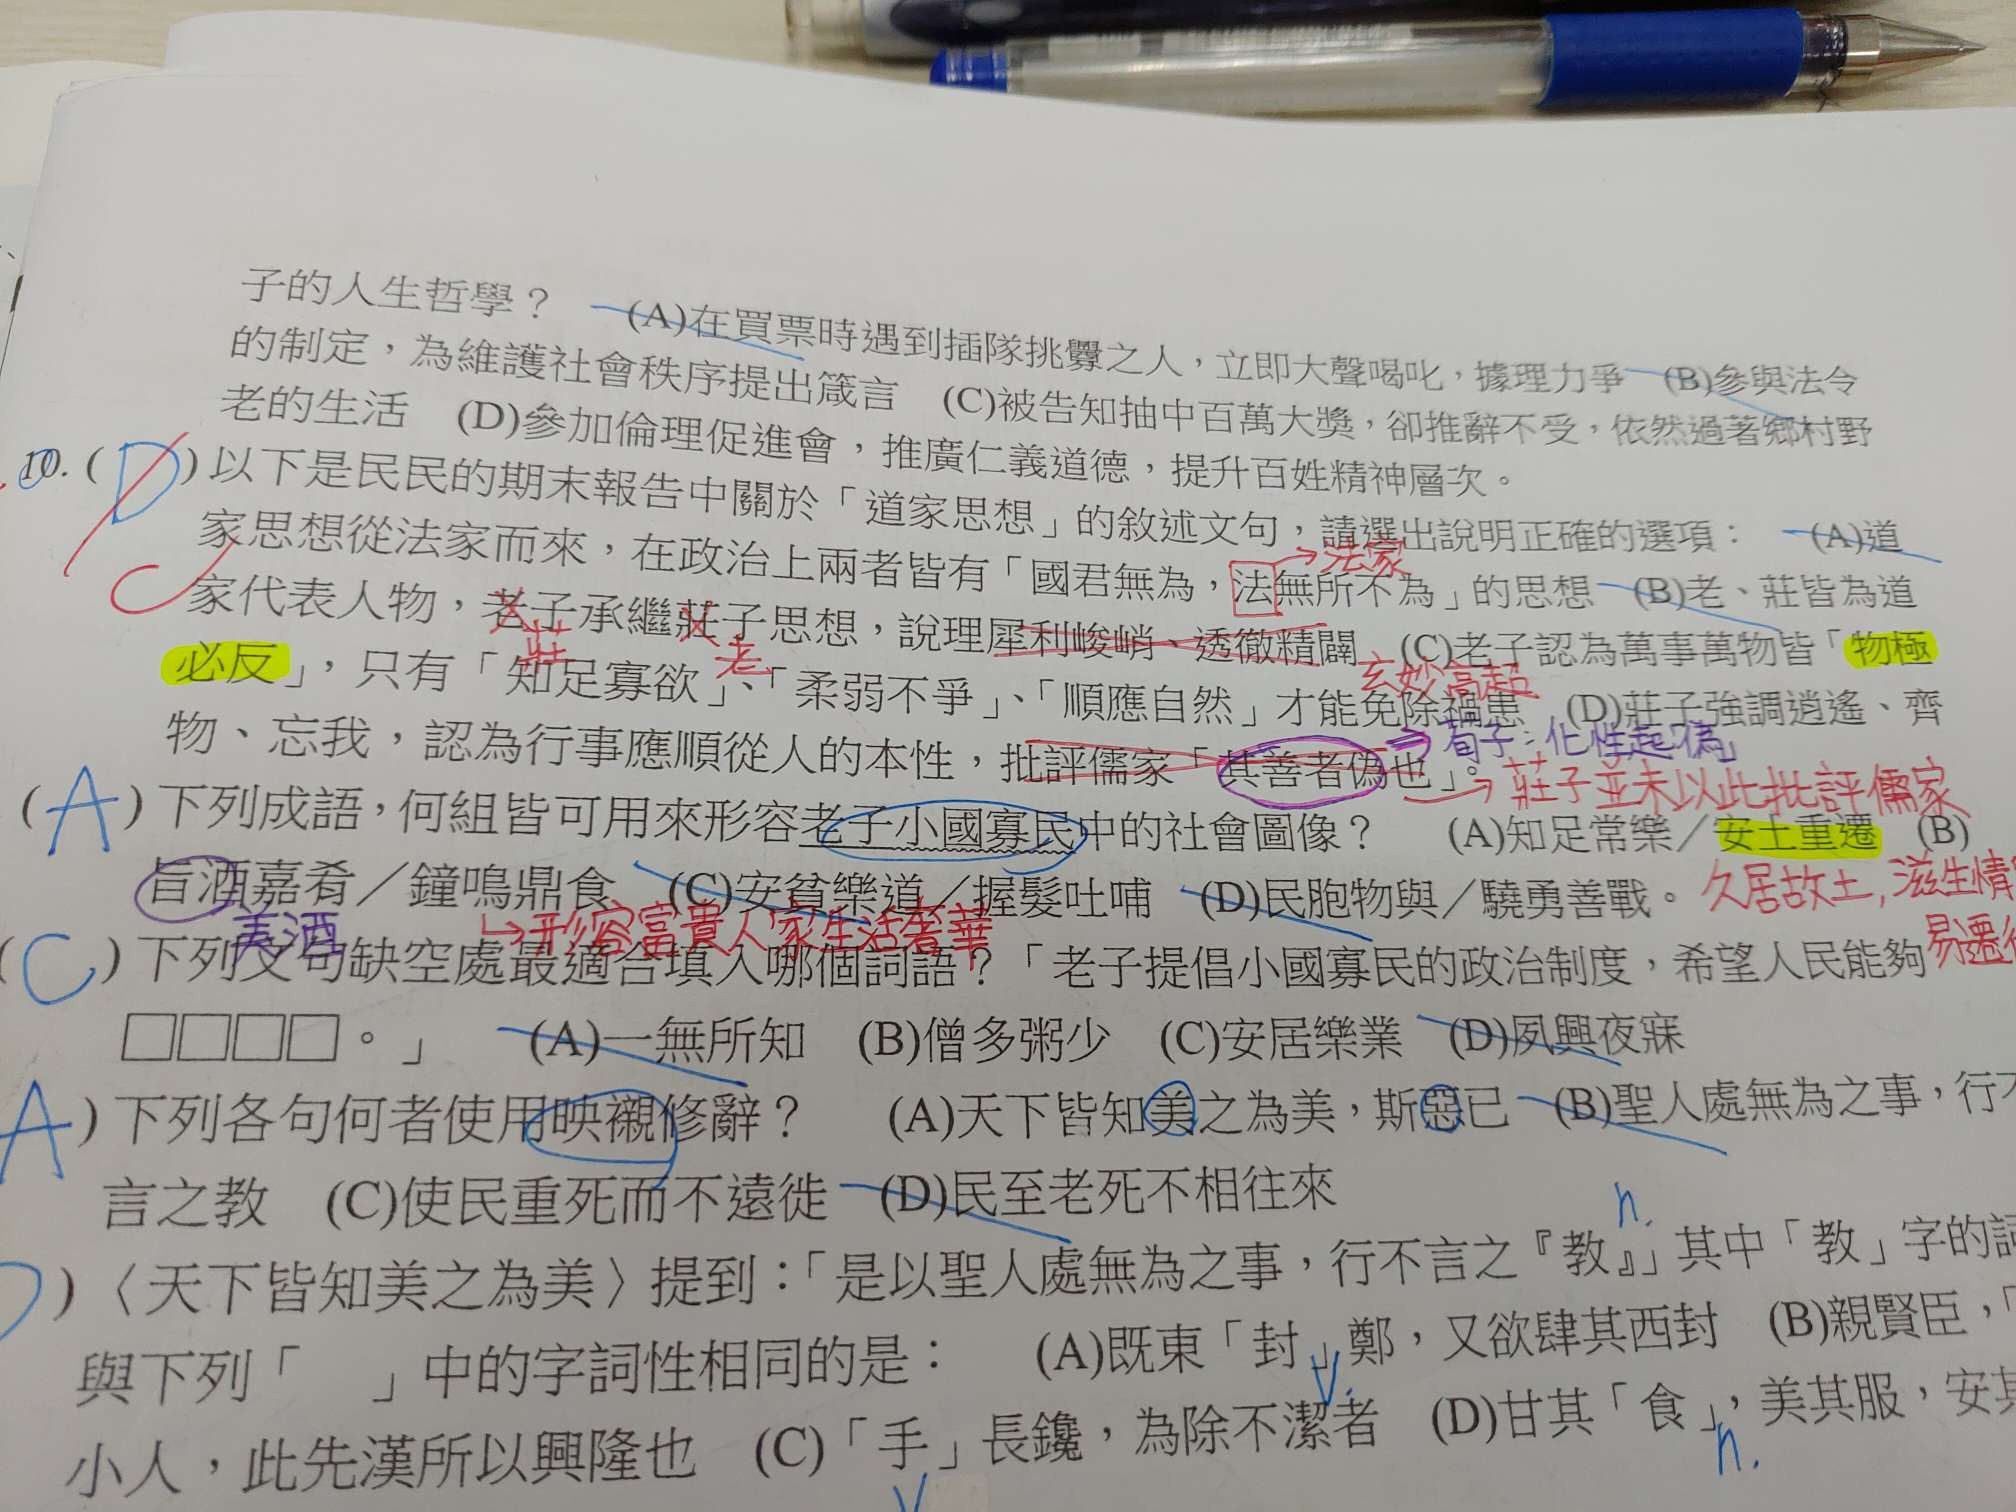 子的人生哲學？　(A)在買票時遇到插隊挑釁之人，立即大聲喝叱，據理力爭　(B)參與法令
的制定，為維護社會秩序提出箴言　(C)被告知抽中百萬大獎，卻推辭不受，依然過著鄉村野
老的生活　(D)參加倫理促進會，推廣仁義道德，提升百姓精神層次。
10. ( D ) 以下是民民的期末報告中關於「道家思想」的敘述文句，請選出說明正確的選項：　(A)道
C
家思想從法家而來，在政治上兩者皆有「國君無為，法無所不為」的思想　(B)老、莊皆為道
→法家
家代表人物，老子承繼莊子思想，說理犀利峻峭、透徹精闢　(C)老子認為萬事萬物皆「物極
莊　老　玄妙高超
必反」，只有「知足寡欲」、「柔弱不爭」、「順應自然」才能免除禍患　(D)莊子強調逍遙、齊
物、忘我，認為行事應順從人的本性，批評儒家「其善者偽也」。
⇒荀子：化性起「偽」
→莊子並未以此批評儒家
( A ) 下列成語，何組皆可用來形容老子小國寡民中的社會圖像？　(A)知足常樂／安土重遷　(B)
旨酒嘉肴／鐘鳴鼎食　(C)安貧樂道／握髮吐哺　(D)民胞物與／驍勇善戰。
美酒　↳形容富貴人家生活奢華
久居故土,滋生情
易遷
( C ) 下列文句缺空處最適合填入哪個詞語？「老子提倡小國寡民的政治制度，希望人民能夠
□□□□。」　(A)一無所知　(B)僧多粥少　(C)安居樂業　(D)夙興夜寐
A ) 下列各句何者使用映襯修辭？　(A)天下皆知美之為美，斯惡已　(B)聖人處無為之事，行不
言之教　(C)使民重死而不遠徙　(D)民至老死不相往來
n.
) 〈天下皆知美之為美〉提到：「是以聖人處無為之事，行不言之『教』」其中「教」字的詞
與下列「　」中的字詞性相同的是：　(A)既東「封」鄭，又欲肆其西封　(B)親賢臣，「
v.
小人，此先漢所以興隆也　(C)「手」長鑱，為除不潔者　(D)甘其「食」，美其服，安其
v　n.